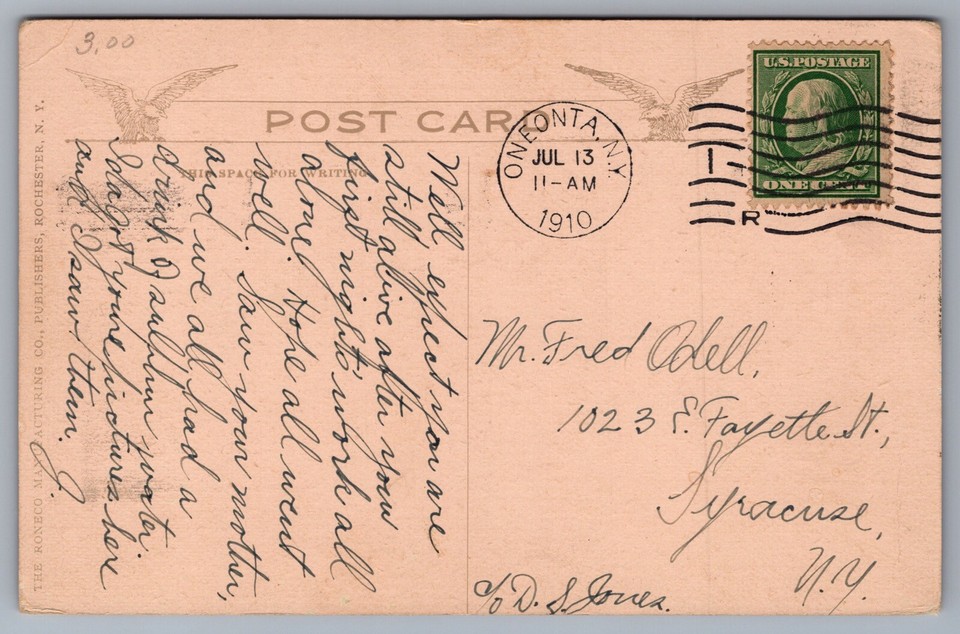 3.00
POST CARD
THIS SPACE FOR WRITING
ONEONTA, N.Y.
JUL 13
11-AM
1910
1
R
U.S. POSTAGE
ONE CENT
Well expect you are
still alive after your
first nights' work all
alone. Hope all went
well. Saw your mother,
and we all had a
drink of sulphur water.
Ida got your pictures here
and I saw them. J.
Mr. Fred Odell,
1023 E. Fayette St.,
Syracuse,
N.Y.
c/o D. S. Jones.
THE RONECO MANUFACTURING CO., PUBLISHERS, ROCHESTER, N. Y.